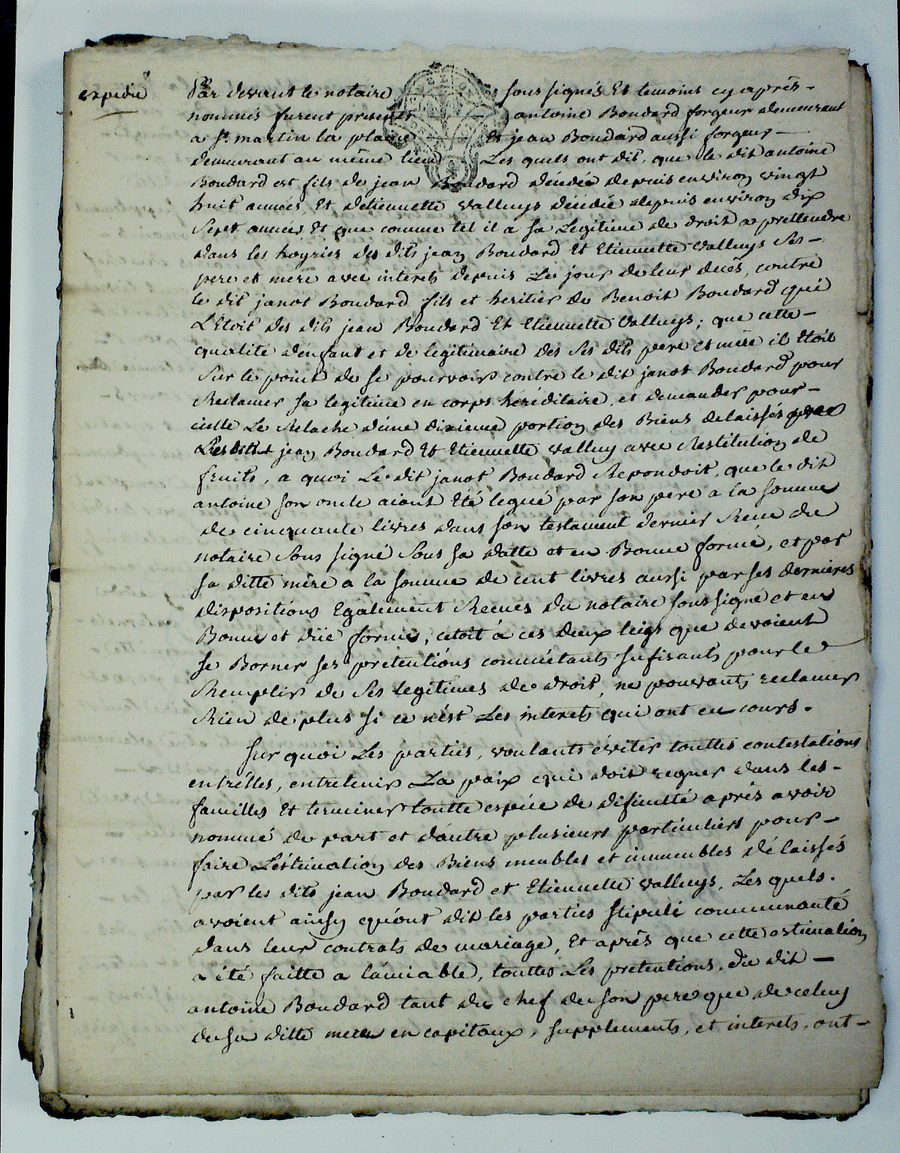 expedié
Par devant le notaire soussignés Et temoins cy après -
nommés furent presents antoine Boudard forgeur demeurant
a St martin la plaine Et jean Boudard aussi forgeur -
demeurant au même lieu Les quels ont dit, que le dit antoine
Boudard est fils de jean Boudard décédé depuis environ vingt
huit années, Et d'etiennette valluys décédée depuis environ dix
Sept années Et que comme tel il a sa Legitime de droit a prettendre
dans les hoyries des dits jean Boudard Et Etiennette valluys Ses -
pere et mere avec interets depuis Le jour de leur decès, contre
le dit janot Boudard fils et heritier de Benoit Boudard qui
L'Etoit des dits jean Boudard Et Etiennette Valluys; que cette -
qualité d'enfant et de legitimaire des Ses dits pere et mere il Etoit
Sur le point de se pourvoir contre le dit janot Boudard pour
Reclamer sa legitime en corps hereditaire, et demander pour -
icelle Le Relache d'une dixieme portion des Biens delaissés par
Lesdits jean Boudard Et Etiennette valluy avec Restitution de
fruits, a quoi Le dit janot Boudard Repondoit, que le dit
antoine son oncle aiant Eté legué par son pere a la somme
de cinquante livres dans son testament dernier Recu du
notaire Sous signé Sous sa datte et en Bonne forme, et par
sa ditte mère a la somme de cent livres aussi par ses dernieres
dispositions Egalement Recues du notaire soussigné et en
Bonne et düe forme, cetoit à ces deux legs que devoient
se Borner ses pretentions commétants sufisants pour le
Remplir de Ses legitimes de droit, ne pouvant reclamer
Rien de plus si ce n'est Les interets qui ont en cours.
Sur quoi Les parties, voulants éviter touttes contestations
entr'elles, entretenir La paix qui doit regner dans les -
familles Et terminer toutte espéce de dificulté après avoir
nommé de part et d'autre plusieurs particuliers pour -
faire L'estimation des Biens meubles et immeubles délaissés
par les dits jean Boudard et Etiennette valluys, Les quels.
avoient ainsy qu'ont dit les parties stipulé communauté
dans leur contrats de mariage, Et après que cette estimation
a été faitte a l'amiable, touttes Les pretentions, du dit -
antoine Boudard tant du chef de son pere que de celuy
de sa ditte mere en capitaux, supplements, et interets, ont -